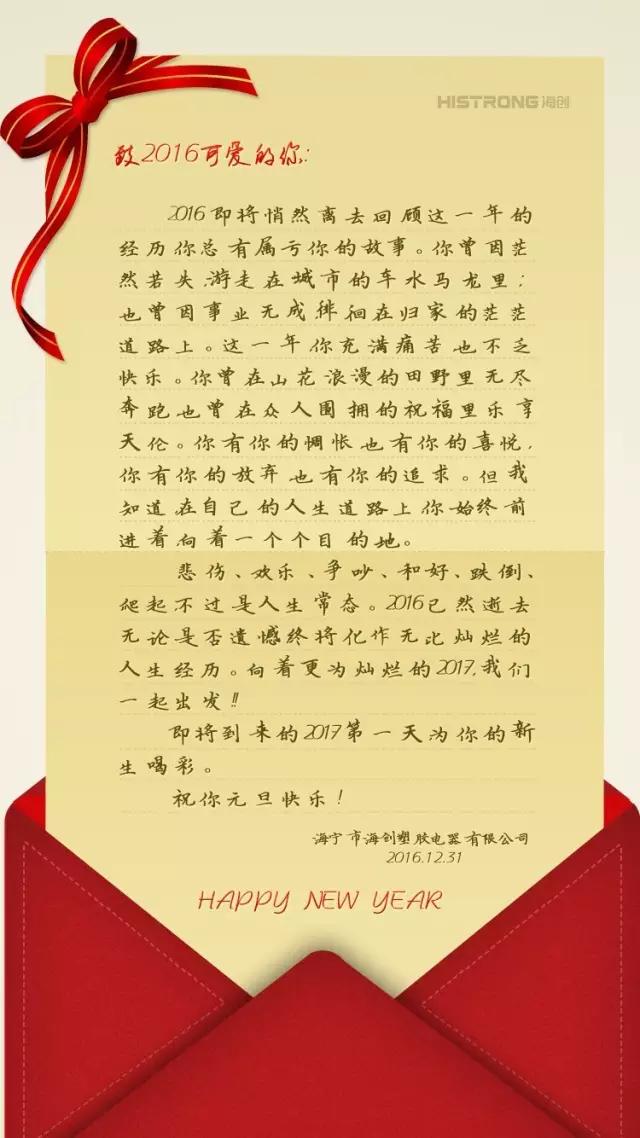 HISTRONG海创
致2016可爱的你:
2016即将悄然离去回顾这一年的
经历你总有属亏你的故事。你曾因茫
然若失,游走在城市的车水马龙里;
也曾因事业无成徘徊在归家的茫茫
道路上。这一年你充满痛苦也不乏
快乐。你曾在山花浪漫的田野里无尽
奔跑也曾在众人围拥的祝福里乐享
天伦。你有你的惆怅也有你的喜悦,
你有你的放弃也有你的追求。但我
知道在自己的人生道路上你始终前
进着向着一个个目的地。
悲伤、欢乐、争吵、和好、跌倒、
爬起不过是人生常态。2016已然逝去
无论是否遗憾终将化作无比灿烂的
人生经历。向着更为灿烂的2017,我们
一起出发!!
即将到来的2017第一天为你的新
生喝彩。
祝你元旦快乐!
海宁市海创塑胶电器有限公司
2016.12.31
HAPPY NEW YEAR